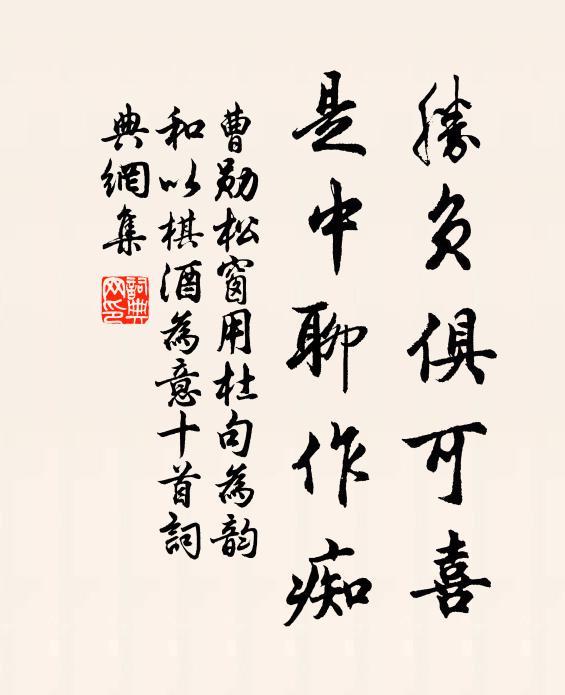 勝負俱可喜
是中聊作痴
曹勛松窗用杜句為韵
和以棋酒為意十首詞
典網集
詞典网印